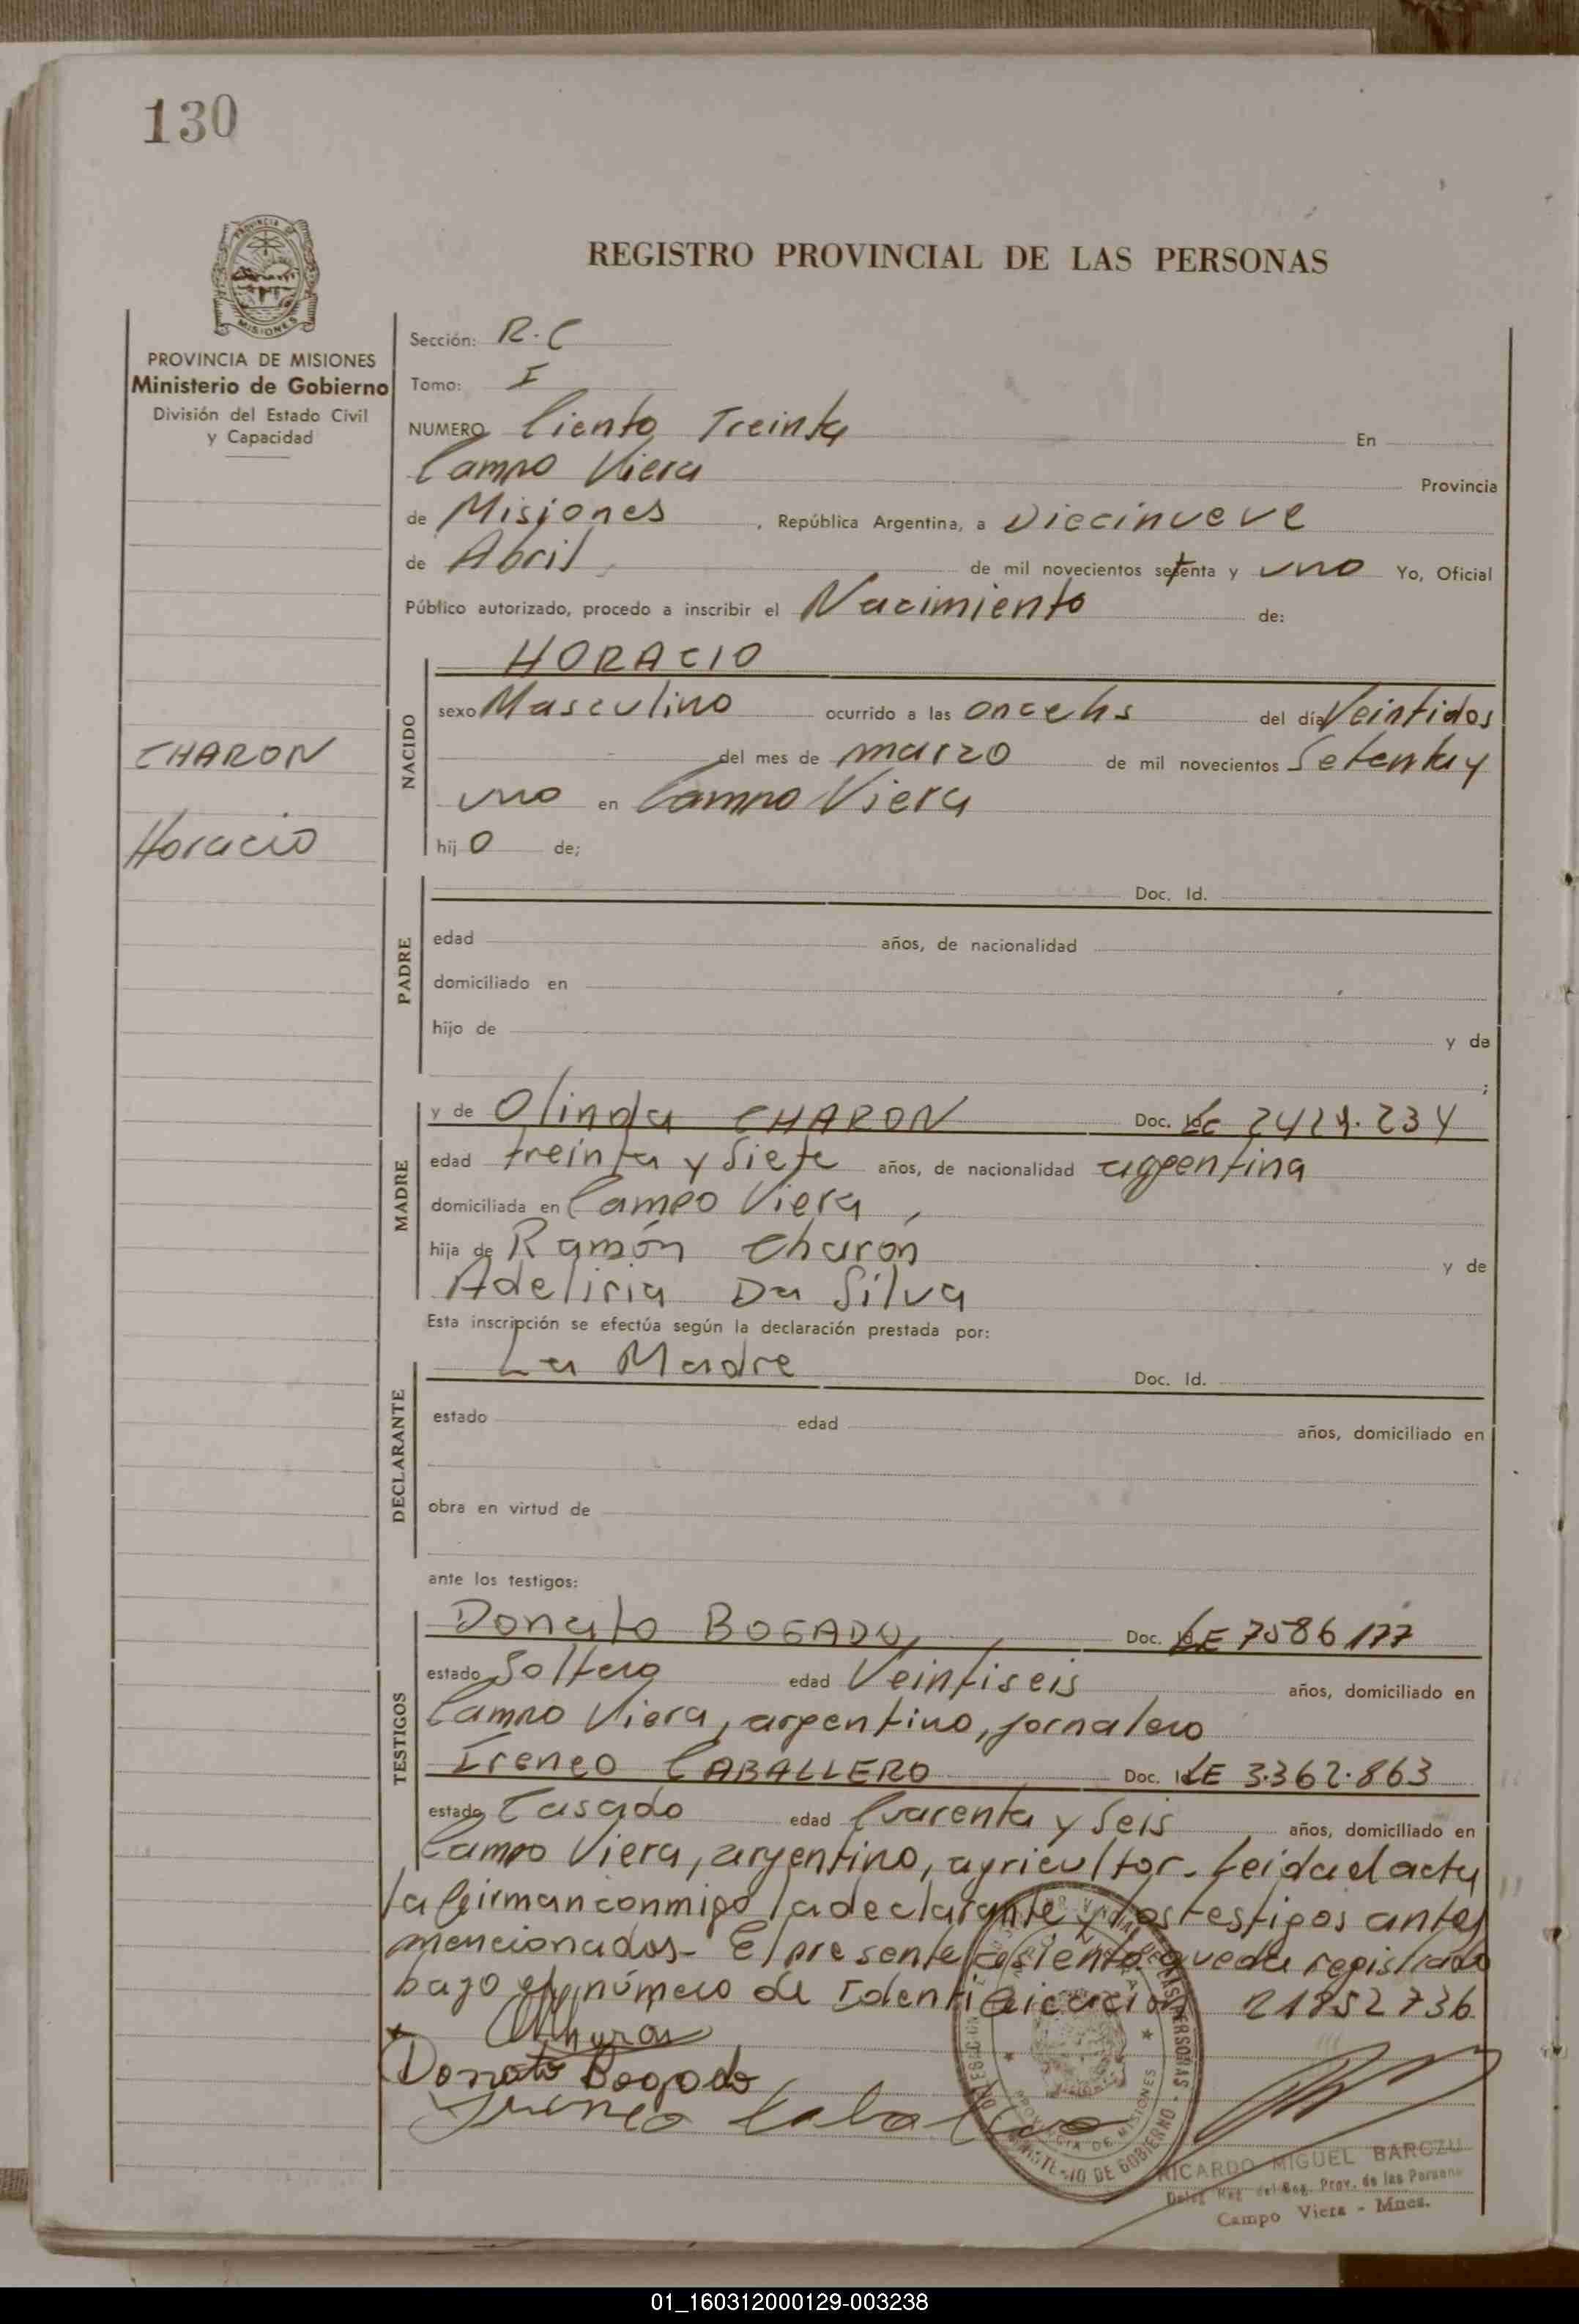 130
REGISTRO PROVINCIAL DE LAS PERSONAS
PROVINCIA DE MISIONES
Ministerio de Gobierno
División del Estado Civil
y Capacidad
Sección: R.C
Tomo: I
NUMERO Ciento Treinta En
Campo Viera Provincia
de Misiones , República Argentina, a Diecinueve
de Abril de mil novecientos setenta y uno Yo, Oficial
Público autorizado, procedo a inscribir el Nacimiento de:
HORACIO
NACIDO
sexo Masculino ocurrido a las once hs del día Veintidos
del mes de marzo de mil novecientos Setenta y
uno en Campo Viera
hijo de;
CHARON
Horacio
PADRE
Doc. Id.
edad años, de nacionalidad
domiciliado en
hijo de y de
;
MADRE
y de Olinda CHARON Doc. LC 2424.234
edad treinta y Siete años, de nacionalidad argentina
domiciliada en Campo Viera
hija de Ramón Charón y de
Adeliria Da Silva
Esta inscripción se efectúa según la declaración prestada por:
DECLARANTE
La Madre Doc. Id.
estado edad años, domiciliado en
obra en virtud de
ante los testigos:
TESTIGOS
Donato BOGADO Doc. LE 7586177
estado Soltero edad Veintiseis años, domiciliado en
Campo Viera, argentino, jornalero
Ireneo CABALLERO Doc. LE 3.362.863
estado Casado edad Cuarenta y Seis años, domiciliado en
Campo Viera, argentino, agricultor. Leida el acta
la firman conmigo la declarante y los testigos antes
mencionados- El presente asiento queda registrado
bajo el número de Identificación 21852736
Donato Bogado
RICARDO MIGUEL BARCZU
Campo Viera - Mnes.
01_160312000129-003238